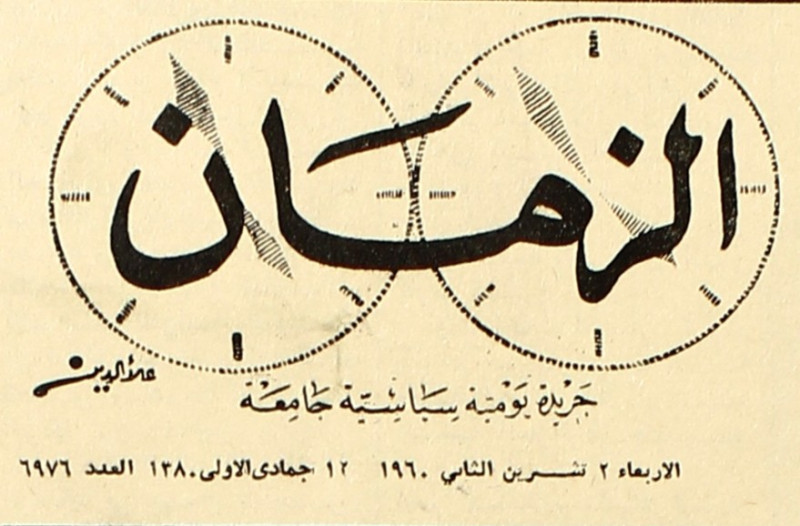 الزمان
علاء الدين
جَرْيدة يَوْمية سِيَاسِيَّة جَامِعَة
الاربعاء ٢ تشرين الثاني ١٩٦٠ ١٢ جمادى الاولى ١٣٨٠ العدد ٦٩٧٦